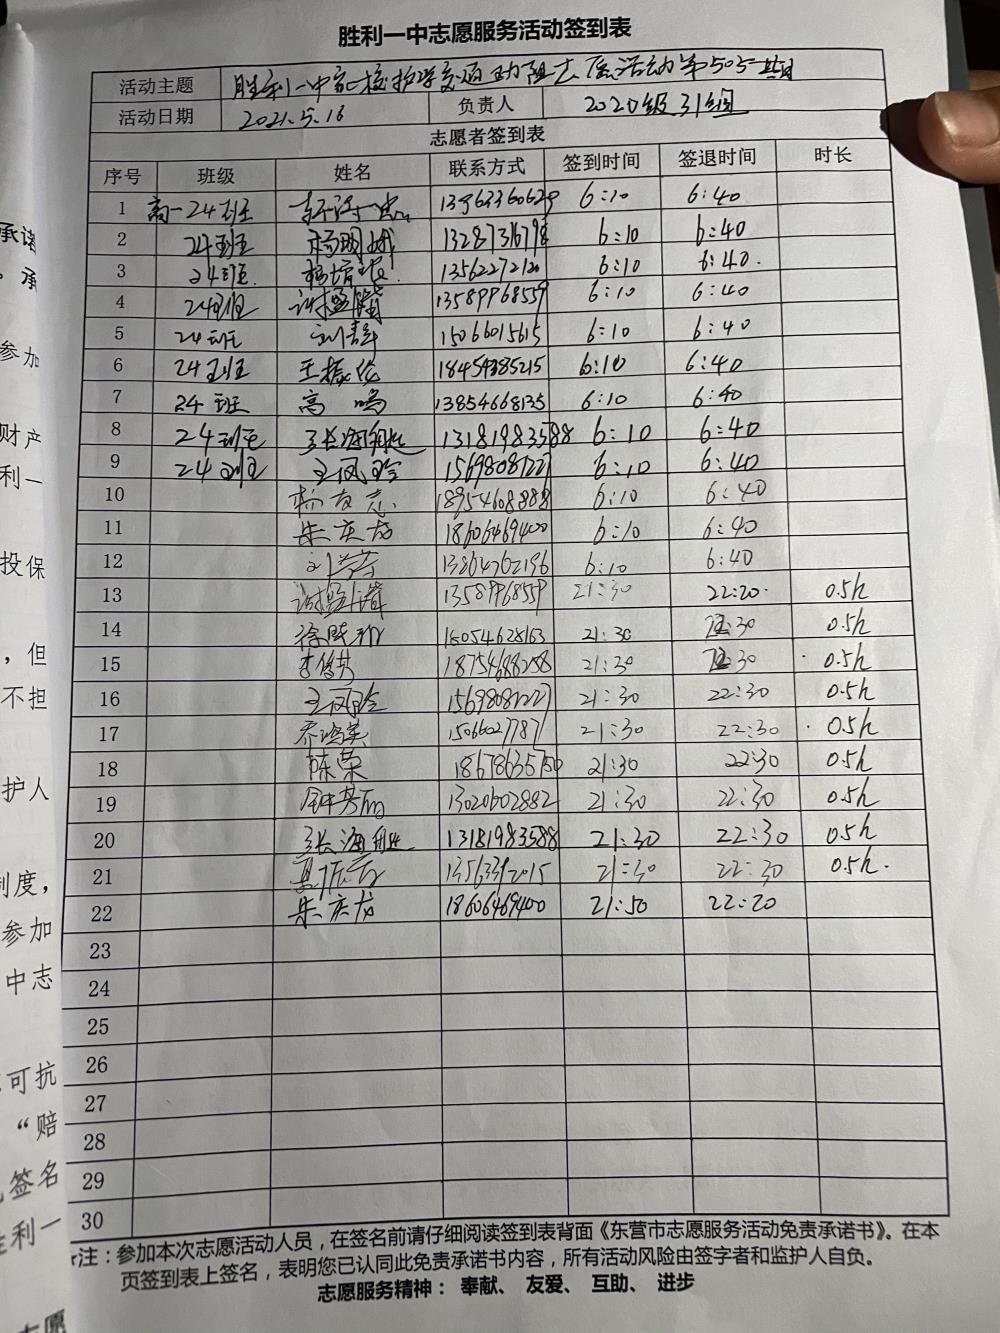 胜利一中志愿服务活动签到表
活动主题 胜利一中家校护学交通助阻志愿活动第505期
活动日期 2021.5.16 负责人 2020级31组
志愿者签到表
序号 班级 姓名 联系方式 签到时间 签退时间 时长
1 高一24班 13963360629 6:10 6:40
2 24班 杨明娥 6:10 6:40
3 24班 13562272120 6:10 6:40.
4 24班 13589968559 6:10 6:40
5 24班 刘静 15066015615 6:10 6:40
6 24班 王振伦 6:10 6:40
7 24班 高鸣 13854668135 6:10 6:40
8 24班 张海胜 13181983588 6:10 6:40
9 24班 王凤玲 15698081227 6:10 6:40
10 杨友志 18954608888 6:10 6:40
11 朱庆龙 18606469400 6:10 6:40
12 6:10 6:40
13 21:30 22:20. 0.5h
14 徐晓丽 15054628163 21:30 22:30 0.5h
15 18754688258 21:30 22:30 0.5h
16 王凤玲 15698081227 21:30 22:30 0.5h
17 乔鸿英 15066027787 21:30 22:30 0.5h
18 陈荣 18678635750 21:30 22:30 0.5h
19 钟芳丽 13020602882 21:30 22:30 0.5h
20 张海胜 13181983588 21:30 22:30 0.5h
21 13563392015 21:30 22:30 0.5h.
22 朱庆龙 18606469400 21:50 22:20
23
24
25
26
27
28
29
30
注：参加本次志愿活动人员，在签名前请仔细阅读签到表背面《东营市志愿服务活动免责承诺书》。在本
页签到表上签名，表明您已认同此免责承诺书内容，所有活动风险由签字者和监护人自负。
志愿服务精神： 奉献、 友爱、 互助、 进步
承诺
，承
参加
财产
利一
投保
，但
不担
护人
制度，
参加
中志
可抗
“赔
签名
胜利一
志愿